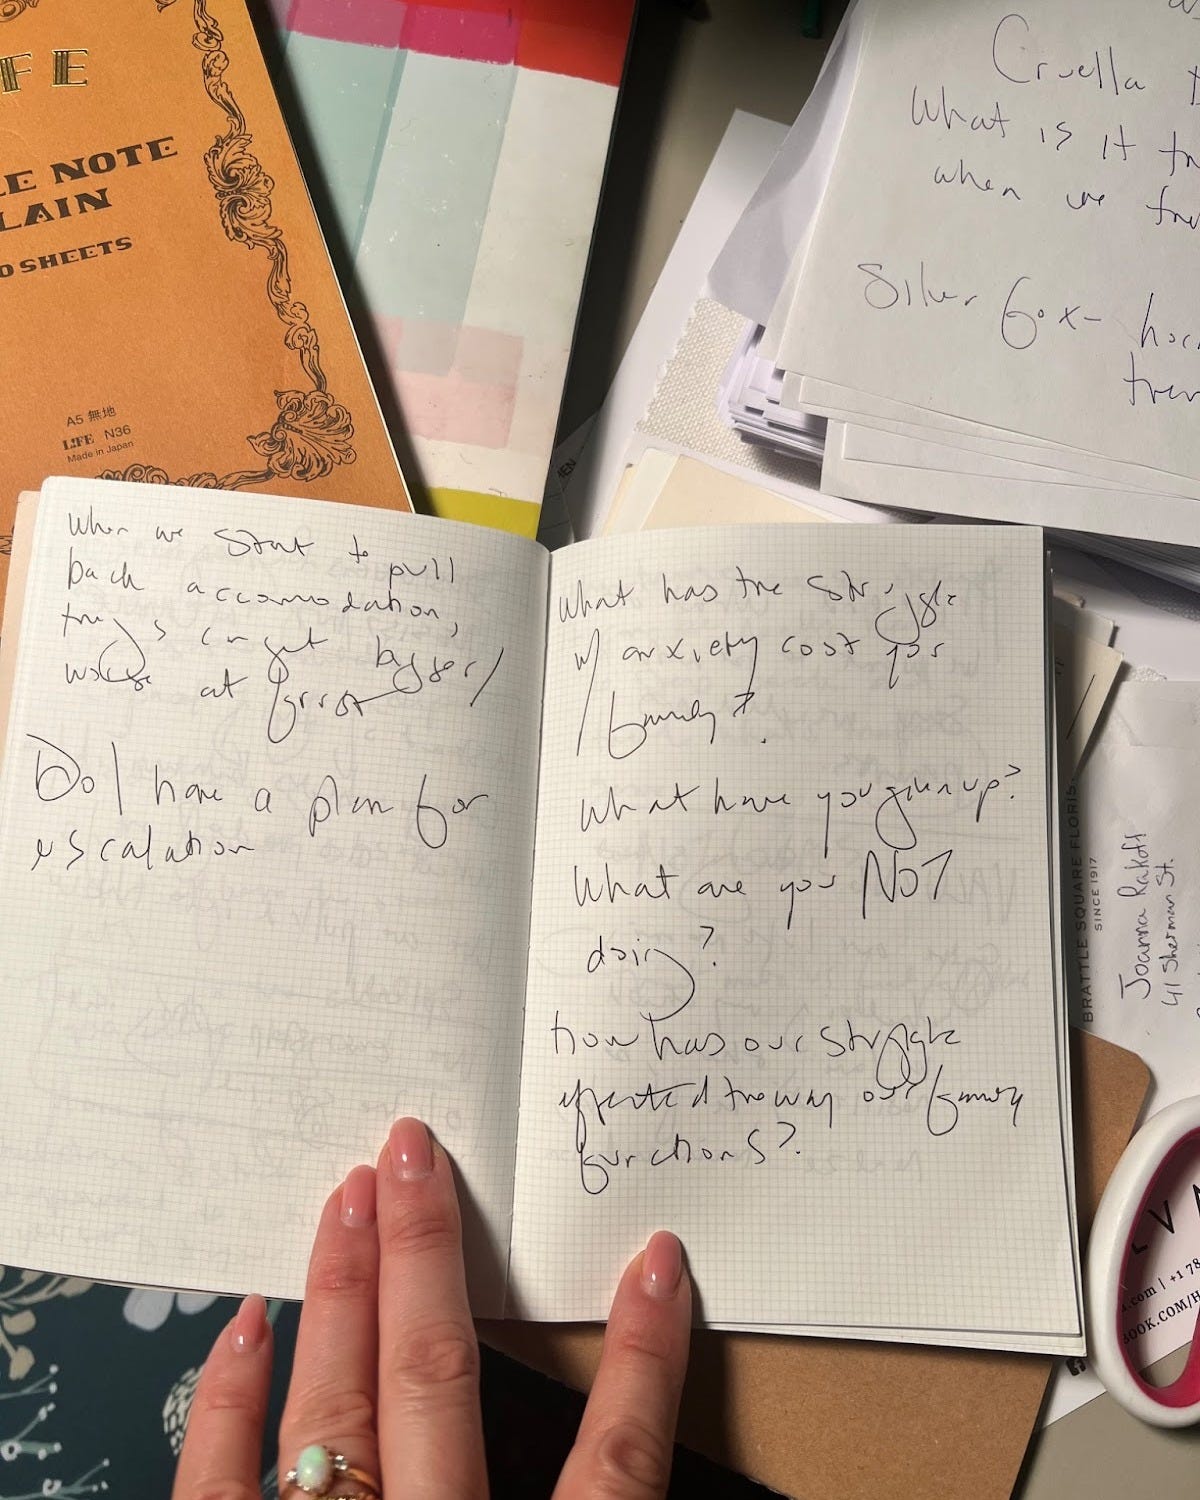 FE
LE NOTE
LAIN
0 SHEETS
A5 無地
L!FE N36
Made in Japan
Cruella
What is it
when we
Silver Fox-
when we start to pull
back accomodation,
things can get bigger/
worse at first
Do I have a plan for
escalation
What has the struggle
w/ anxiety cost your
family?
What have you given up?
What are you NOT
doing?
How has our struggle
effected the way our family
functions?
BRATTLE SQUARE FLORIS
SINCE 1917
Joanna Rakoff
41 Sherman St.
LV
.com | +1 78
BOOK.COM/H